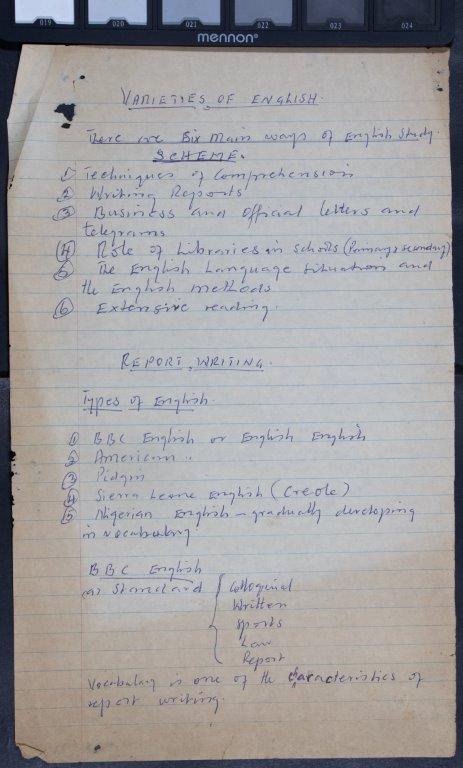 019 020 021 022 023 024
mennon
VARIETIES OF ENGLISH.
There are Six Main ways of English Study.
SCHEME.
① Techniques of Comprehension
② Writing Reports
③ Business and Official letters and
telegrams
④ Role of Libraries in schools (Primary & secondary)
⑤ The English Language Situation and
the English methods
⑥ Extensive reading.
REPORT WRITING.
Types of English.
① BBC English or English English
② American "
③ Pidgin
④ Sierra Leone English (Creole)
⑤ Nigerian English - gradually developing
in vocabulary.
BBC English
(a) Standard { Colloquial
Written
Sports
Law
Report
Vocabulary is one of the characteristics of
report writing.